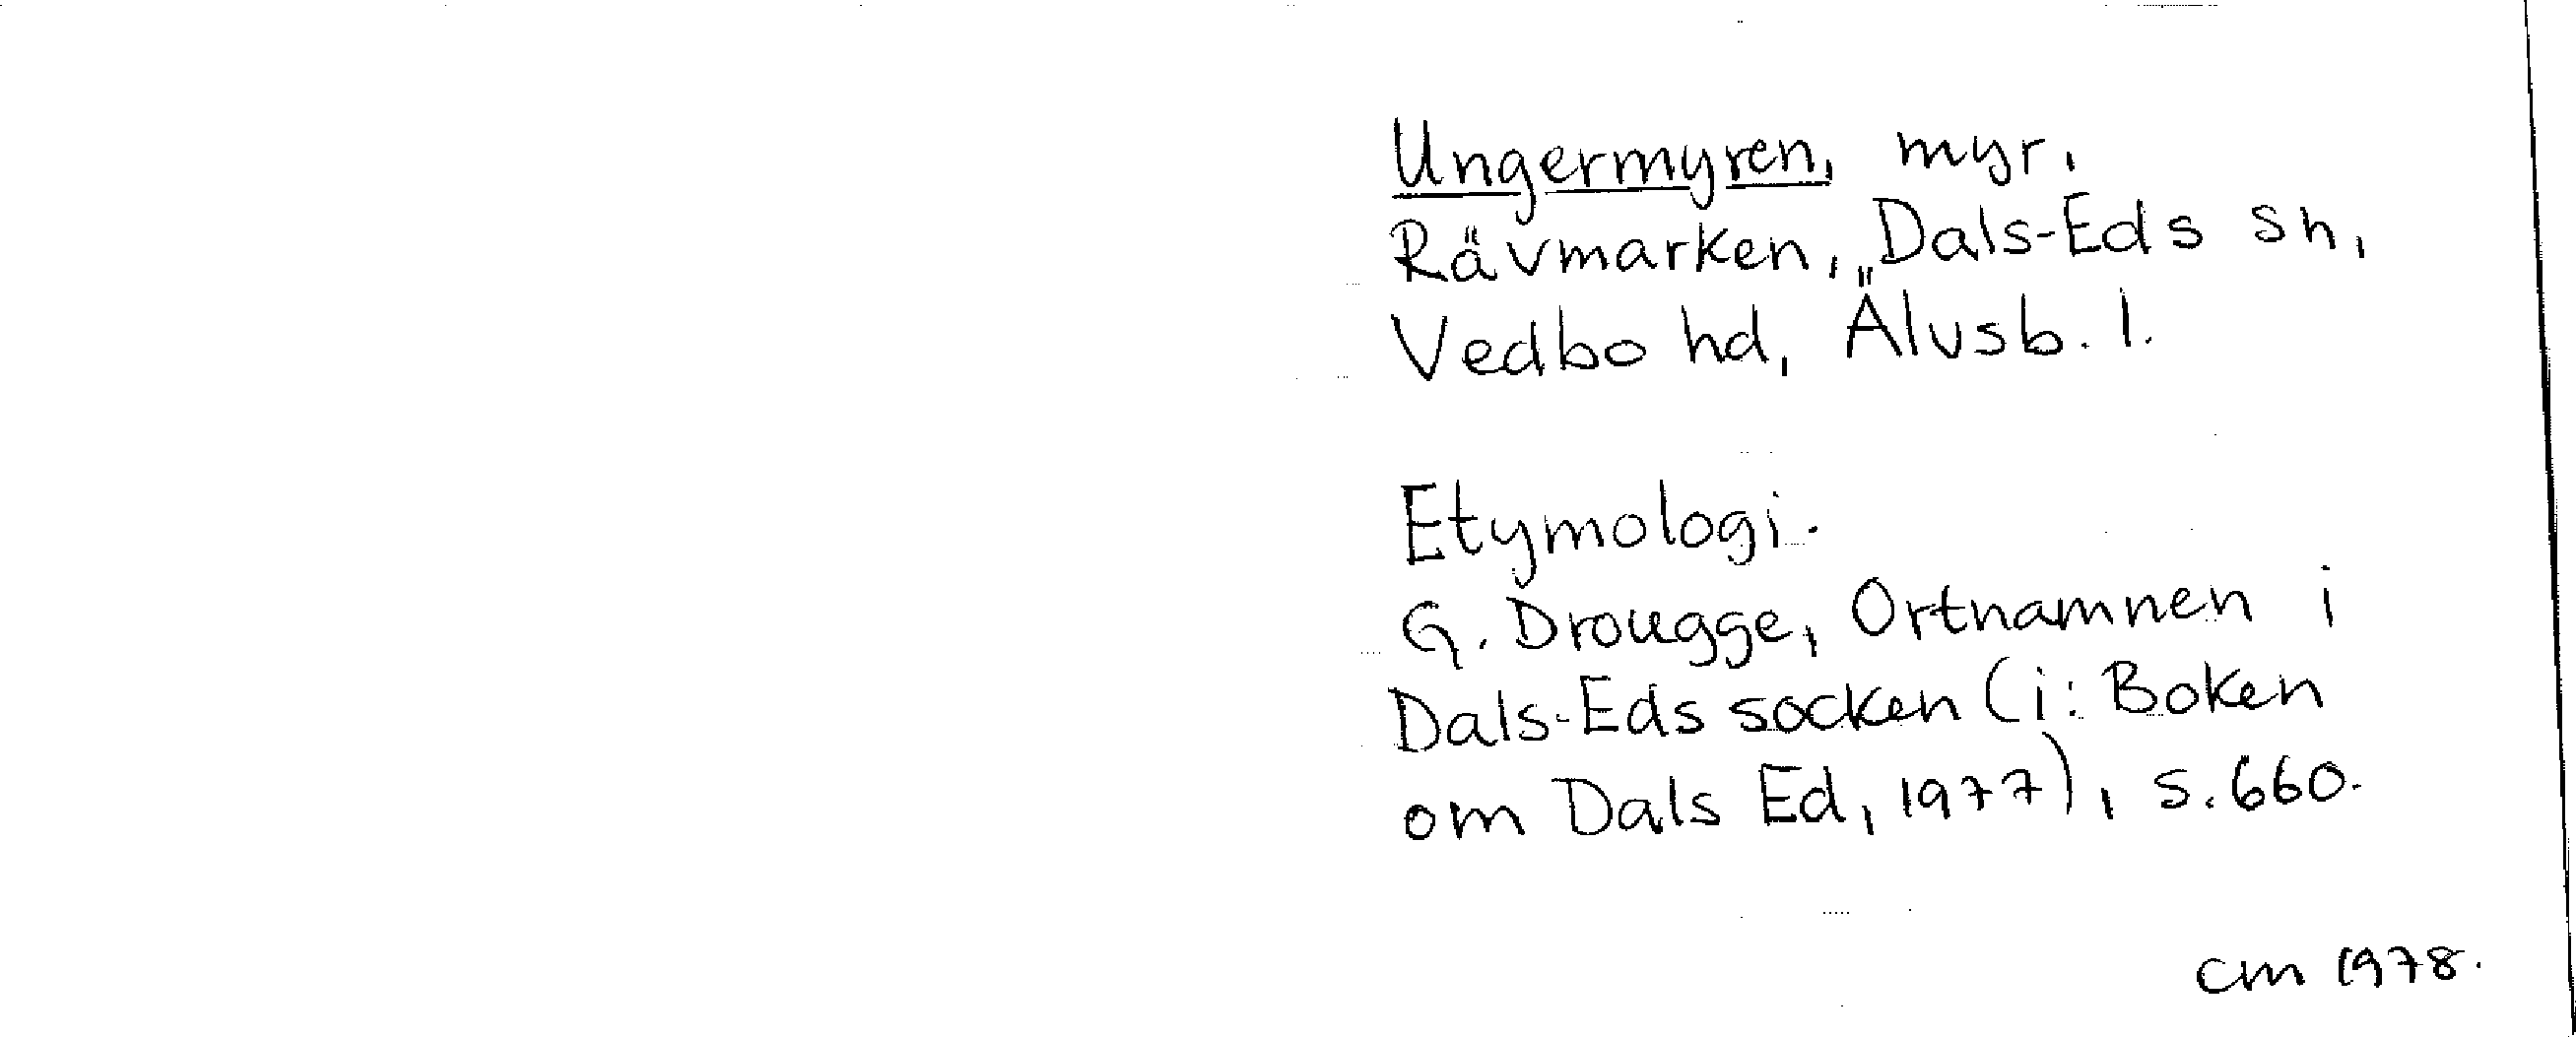 Ungermyren, myr,
Rävmarken, Dals-Eds sn,
Vedbo hd, Älvsb. l.
Etymologi.
G. Drougge, Ortnamnen i
Dals-Eds socken (i: Boken
om Dals Ed, 1977), s. 660.
cm 1978.